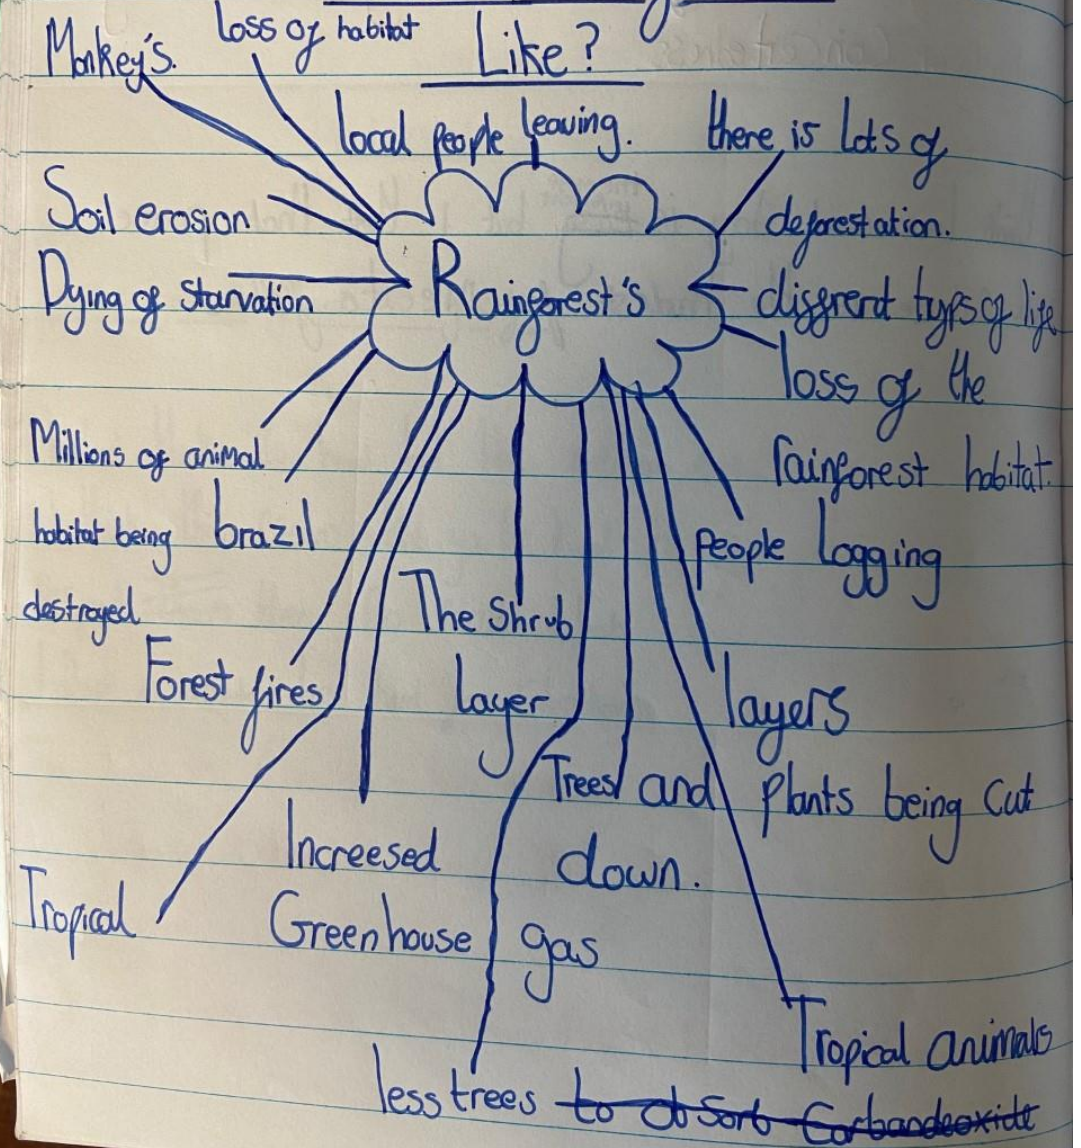 Like?
Monkey's.
loss of habitat
local people leaving.
there is lots of
deforestation.
Soil erosion
Dying of starvation
Rainforest's
diffrent typs of life
loss of the
rainforest habitat.
Millions of animal
habitat being
destroyed
brazil
people logging
The Shrub
layer
Forest fires
layers
Trees and plants being cut
down.
Increesed
Greenhouse gas
Tropical
Tropical animals
less trees to absorb Carbandeoxide